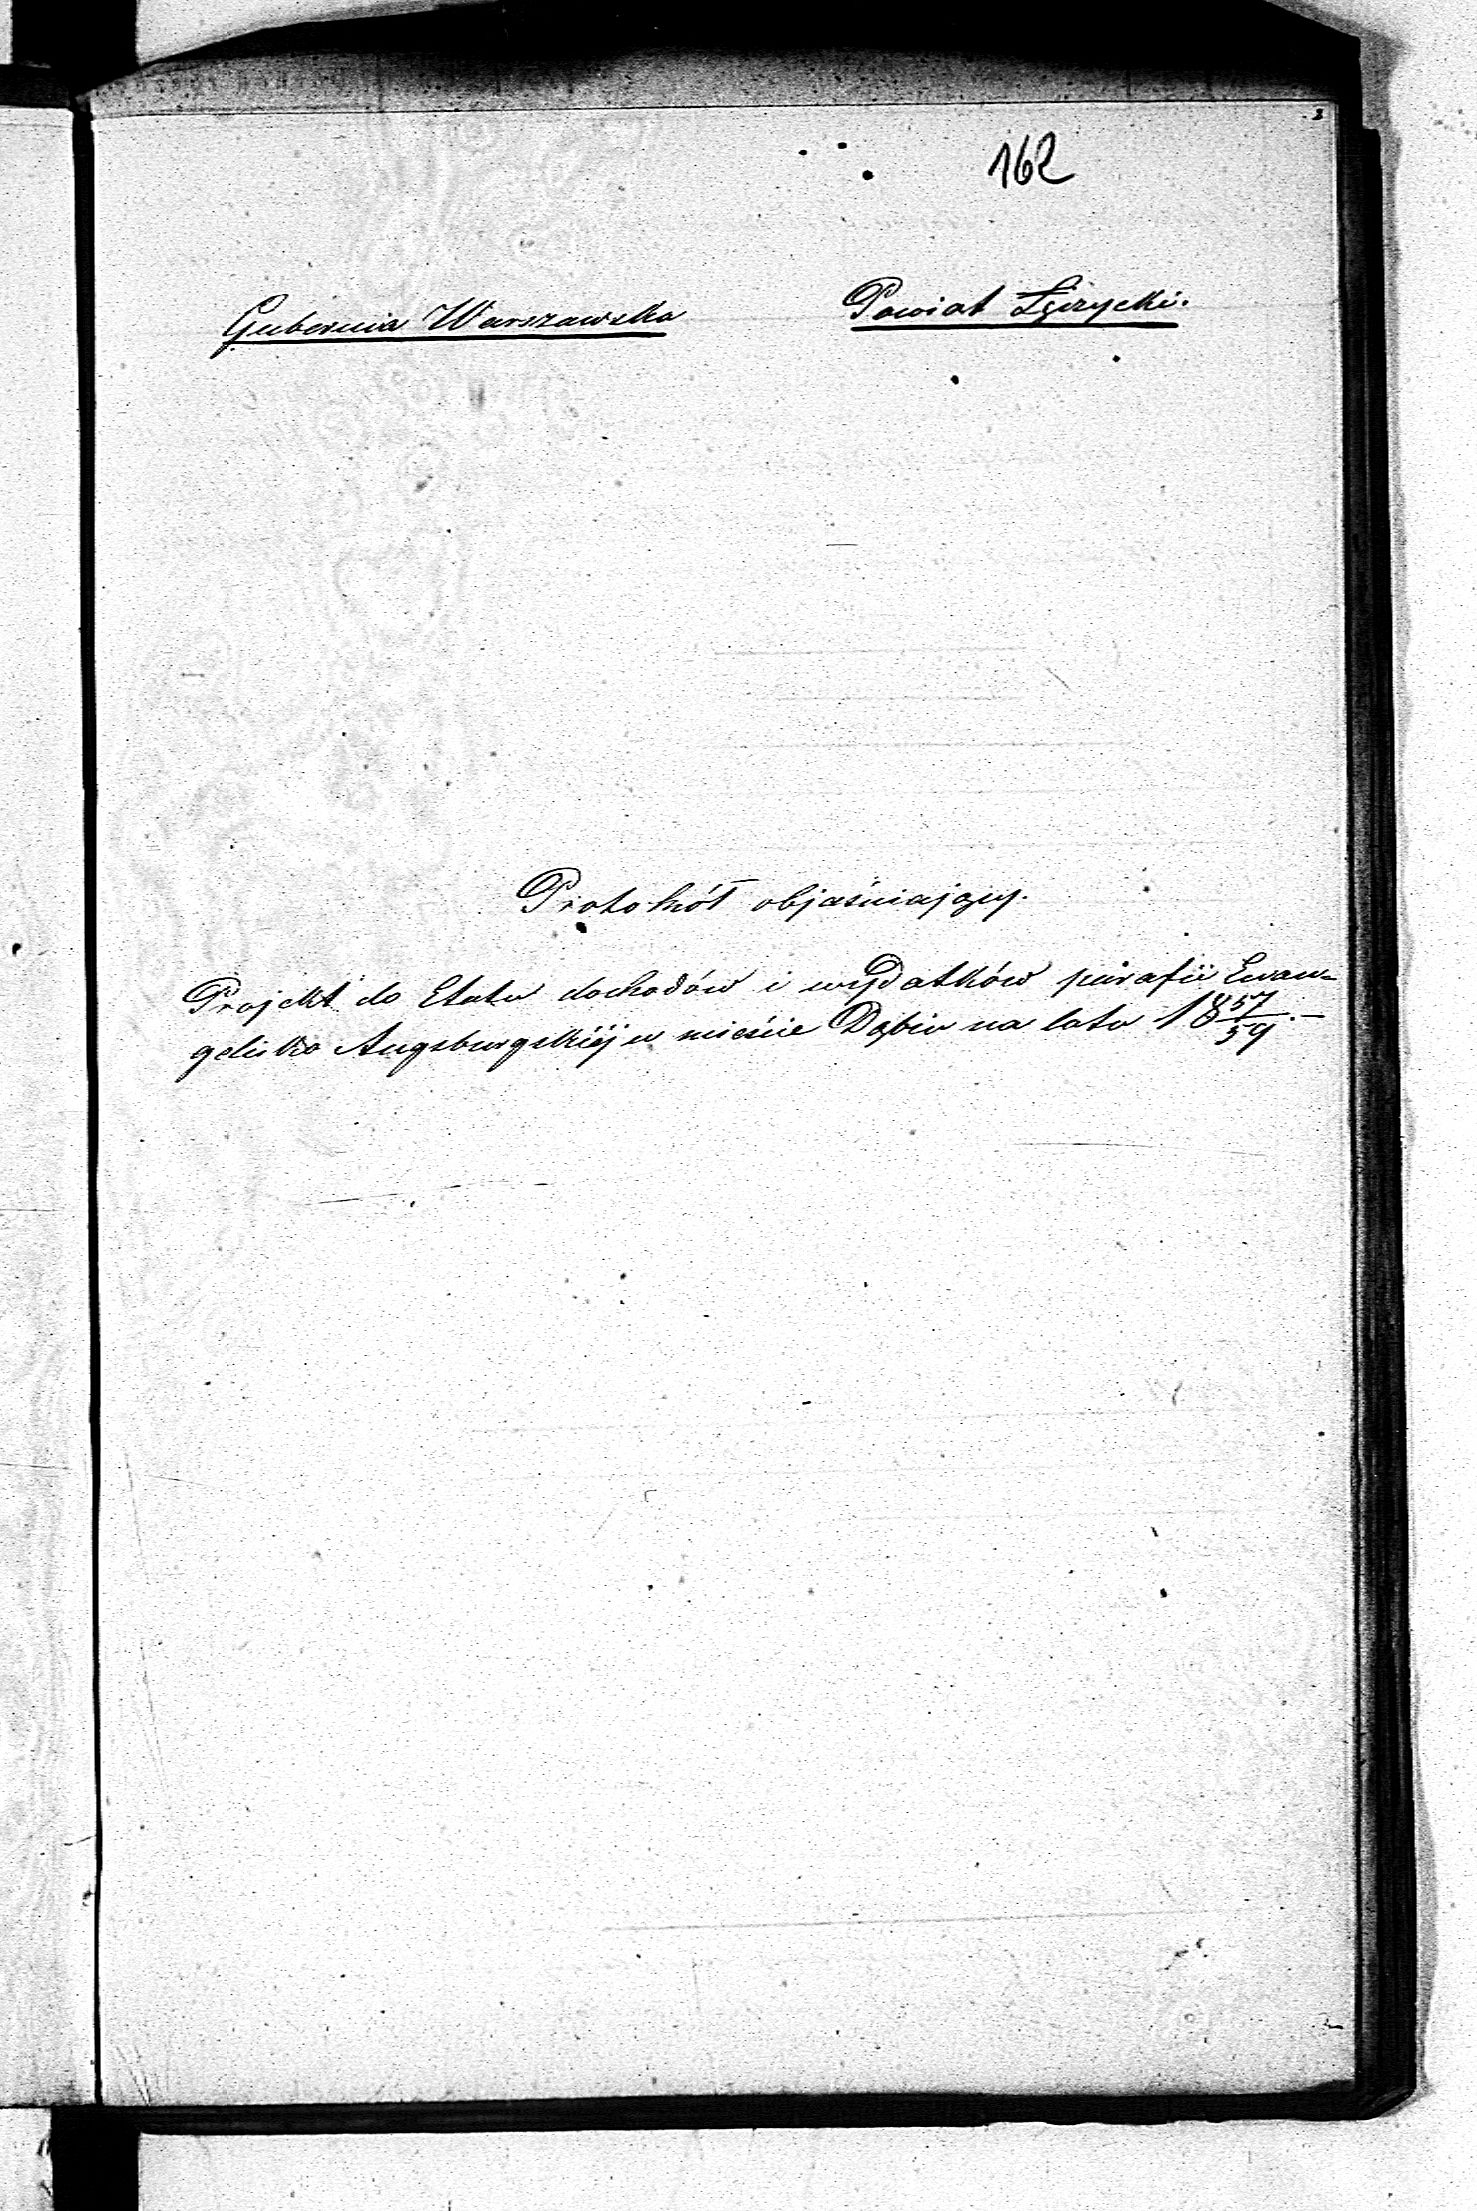 162
Gubernia Warszawska
Powiat Łęczycki.
Protokół objaśniający.
Projekt do Etatu dochodów i wydatków parafii Ewan-
gelicko Augsburgskiéj w mieście Dąbiu na lata 18 57/59.—